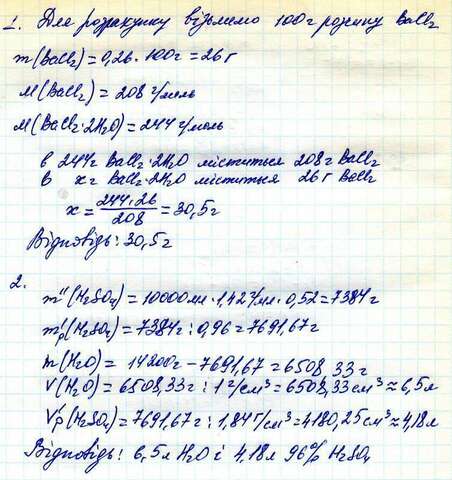 1. Для розрахунку візьмемо 100г розчину BaCl₂
m(BaCl₂) = 0,26 · 100г = 26 г
M(BaCl₂) = 208 г/моль
M(BaCl₂·2H₂O) = 244 г/моль
в 244г BaCl₂·2H₂O міститься 208г BaCl₂
в x г BaCl₂·2H₂O міститься 26 г BaCl₂
x = 244·26/208 = 30,5г
Відповідь: 30,5г
2.
m''(H₂SO₄) = 10000мл · 1,42г/мл · 0,52 = 7384 г
m'р(H₂SO₄) = 7384г : 0,96 = 7691,67г
m(H₂O) = 14200г − 7691,67 = 6508,33г
V(H₂O) = 6508,33г : 1 г/см³ = 6508,33см³ ≈ 6,5л
V'р(H₂SO₄) = 7691,67г : 1,84 г/см³ = 4180,25см³ ≈ 4,18л
Відповідь: 6,5л H₂O і 4,18л 96% H₂SO₄